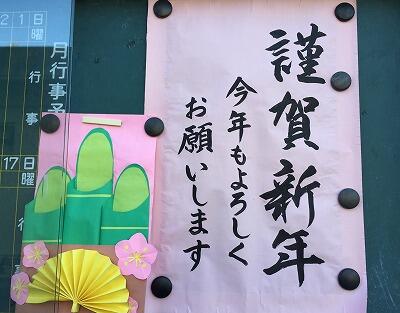 謹賀新年
今年もよろしく
お願いします
月行事予
21日
曜
行事
17日
曜
行